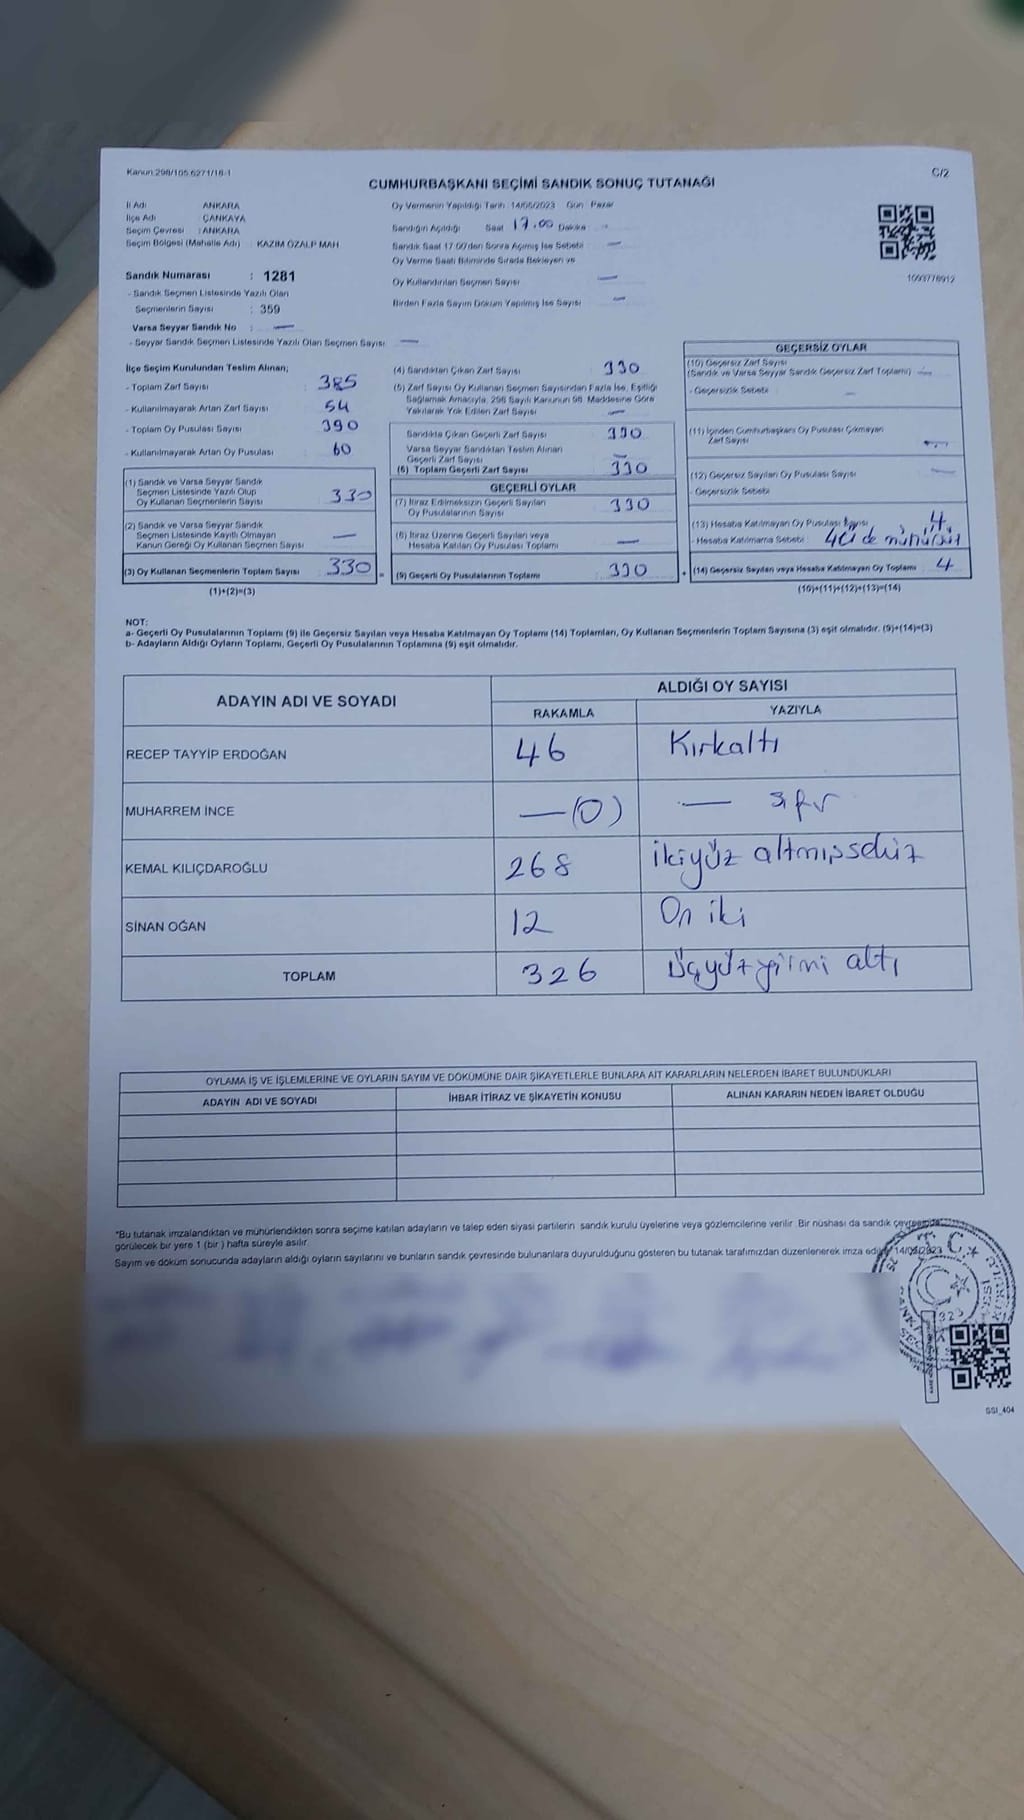 Kanun:298/105.6271/16-1
C/2
CUMHURBAŞKANI SEÇİMİ SANDIK SONUÇ TUTANAĞI
İl Adı ANKARA
İlçe Adı ÇANKAYA
Seçim Çevresi : ANKARA
Seçim Bölgesi (Mahalle Adı) : KAZIM ÖZALP MAH
Sandık Numarası : 1281
- Sandık Seçmen Listesinde Yazılı Olan
Seçmenlerin Sayısı : 359
Varsa Seyyar Sandık No : —
- Seyyar Sandık Seçmen Listesinde Yazılı Olan Seçmen Sayısı —
Oy Vermenin Yapıldığı Tarih : 14/05/2023 Gün : Pazar
Sandığın Açıldığı Saat 17.00 Dakika
Sandık Saat 17.00'den Sonra Açılmış İse Sebebi —
Oy Verme Saati Bitiminde Sırada Bekleyen ve
Oy Kullandırılan Seçmen Sayısı —
Birden Fazla Sayım Döküm Yapılmış İse Sayısı —
1093778912
İlçe Seçim Kurulundan Teslim Alınan;
- Toplam Zarf Sayısı 385
- Kullanılmayarak Artan Zarf Sayısı 54
- Toplam Oy Pusulası Sayısı 390
- Kullanılmayarak Artan Oy Pusulası 60
(1) Sandık ve Varsa Seyyar Sandık
Seçmen Listesinde Yazılı Olup
Oy Kullanan Seçmenlerin Sayısı 330
(2) Sandık ve Varsa Seyyar Sandık
Seçmen Listesinde Kayıtlı Olmayan
Kanun Gereği Oy Kullanan Seçmen Sayısı —
(3) Oy Kullanan Seçmenlerin Toplam Sayısı 330
(1)+(2)=(3)
(4) Sandıktan Çıkan Zarf Sayısı 330
(5) Zarf Sayısı Oy Kullanan Seçmen Sayısından Fazla İse, Eşitliği
Sağlamak Amacıyla, 298 Sayılı Kanunun 98. Maddesine Göre
Yakılarak Yok Edilen Zarf Sayısı —
Sandıkta Çıkan Geçerli Zarf Sayısı 330
Varsa Seyyar Sandıktan Teslim Alınan
Geçerli Zarf Sayısı —
(6) Toplam Geçerli Zarf Sayısı 330
GEÇERLİ OYLAR
(7) İtiraz Edilmeksizin Geçerli Sayılan
Oy Pusulalarının Sayısı 330
(8) İtiraz Üzerine Geçerli Sayılan veya
Hesaba Katılan Oy Pusulası Toplamı —
= (9) Geçerli Oy Pusulalarının Toplamı 330
GEÇERSİZ OYLAR
(10) Geçersiz Zarf Sayısı
(Sandık ve Varsa Seyyar Sandık Geçersiz Zarf Toplamı) —
- Geçersizlik Sebebi —
(11) İçinden Cumhurbaşkanı Oy Pusulası Çıkmayan
Zarf Sayısı —
(12) Geçersiz Sayılan Oy Pusulası Sayısı —
- Geçersizlik Sebebi
(13) Hesaba Katılmayan Oy Pusulası Sayısı 4
- Hesaba Katılmama Sebebi : 4ü de mühürsüz
+ (14) Geçersiz Sayılan veya Hesaba Katılmayan Oy Toplamı 4
(10)+(11)+(12)+(13)=(14)
NOT:
a- Geçerli Oy Pusulalarının Toplamı (9) ile Geçersiz Sayılan veya Hesaba Katılmayan Oy Toplamı (14) Toplamları, Oy Kullanan Seçmenlerin Toplam Sayısına (3) eşit olmalıdır. (9)+(14)=(3)
b- Adayların Aldığı Oyların Toplamı, Geçerli Oy Pusulalarının Toplamına (9) eşit olmalıdır.
ADAYIN ADI VE SOYADI ALDIĞI OY SAYISI
RAKAMLA YAZIYLA
RECEP TAYYİP ERDOĞAN 46 Kırkaltı
MUHARREM İNCE —(0) — sıfır
KEMAL KILIÇDAROĞLU 268 ikiyüz altmışsekiz
SİNAN OĞAN 12 On iki
TOPLAM 326 üçyüzyirmi altı
OYLAMA İŞ VE İŞLEMLERİNE VE OYLARIN SAYIM VE DÖKÜMÜNE DAİR ŞİKAYETLERLE BUNLARA AİT KARARLARIN NELERDEN İBARET BULUNDUKLARI
ADAYIN ADI VE SOYADI İHBAR İTİRAZ VE ŞİKAYETİN KONUSU ALINAN KARARIN NEDEN İBARET OLDUĞU
*Bu tutanak imzalandıktan ve mühürlendikten sonra seçime katılan adayların ve talep eden siyasi partilerin sandık kurulu üyelerine veya gözlemcilerine verilir. Bir nüshası da sandık çevresinde
görülecek bir yere 1 (bir ) hafta süreyle asılır.
Sayım ve döküm sonucunda adayların aldığı oyların sayılarını ve bunların sandık çevresinde bulunanlara duyurulduğunu gösteren bu tutanak tarafımızdan düzenlenerek imza edildi 14/05/2023
T.C.
SSI_404